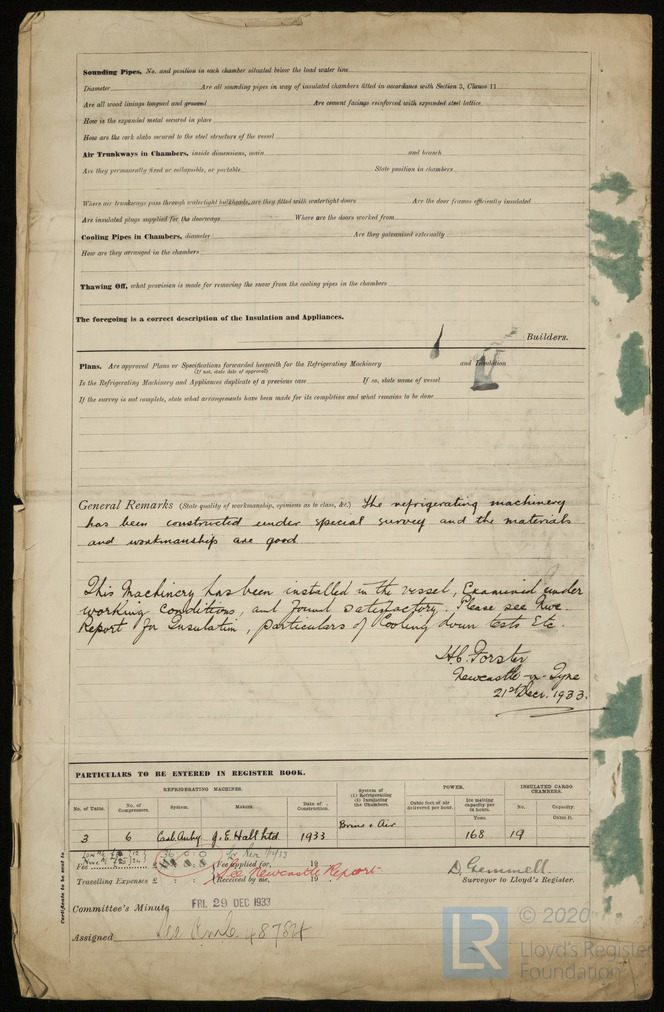 Sounding Pipes, No. and position in each chamber situated below the load water line
Diameter Are all sounding pipes in way of insulated chambers fitted in accordance with Section 3, Clause 11
Are all wood linings tongued and grooved Are cement facings reinforced with expanded steel lattice
How is the expanded metal secured in place
How are the cork slabs secured to the steel structure of the vessel
Air Trunkways in Chambers, inside dimensions, main and branch
Are they permanently fixed or collapsible, or portable State position in chambers
Where air trunkways pass through watertight bulkheads, are they fitted with watertight doors Are the door frames efficiently insulated
Are insulated plugs supplied for the doorways Where are the doors worked from
Cooling Pipes in Chambers, diameter Are they galvanised externally
How are they arranged in the chambers
Thawing Off, what provision is made for removing the snow from the cooling pipes in the chambers
The foregoing is a correct description of the Insulation and Appliances.
Builders.
Plans. Are approved Plans or Specifications forwarded herewith for the Refrigerating Machinery and Insulation
(If not, state date of approval)
Is the Refrigerating Machinery and Appliances duplicate of a previous case If so, state name of vessel
If the survey is not complete, state what arrangements have been made for its completion and what remains to be done
General Remarks (State quality of workmanship, opinions as to class, &c.) The refrigerating machinery
has been constructed under special survey and the materials
and workmanship are good
This Machinery has been installed in the vessel, Examined under
working conditions, and found satisfactory. Please see Nwc.
Report for Insulation, particulars of Cooling down tests Etc.
H.C. Forster
Newcastle-on-Tyne
21st Decr. 1933.
PARTICULARS TO BE ENTERED IN REGISTER BOOK.
REFRIGERATING MACHINES. System of (1) Refrigerating (2) Insulating the Chambers. POWER. INSULATED CARGO CHAMBERS.
No. of Units. No. of Compressors. System. Makers. Date of Construction. Cubic feet of air delivered per hour. Ice melting capacity per 24 hours. No. Capacity.
Tons. Cubic ft.
3 6 Carb. Anhy. J. E. Hall Ltd 1933 Brine & Air 168 19
Fee £ : : Fee applied for, 19
See Newcastle Report
Travelling Expenses £ : : Received by me, 19
D. Gemmell.
Surveyor to Lloyd's Register.
Certificate to be sent to
Committee's Minute FRI. 29 DEC 1933
Assigned See
LR
© 2020
Lloyd's Register
Foundation